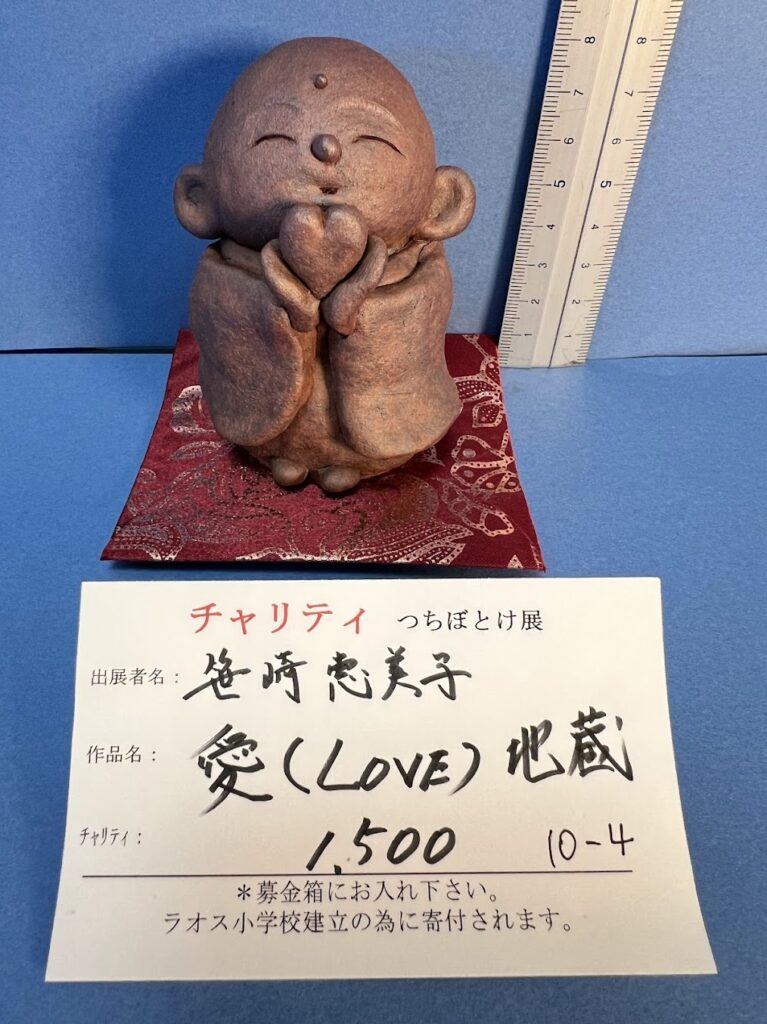 チャリティ つちぼとけ展
出展者名：笹崎恵美子
作品名：愛（LOVE）地蔵
ﾁｬﾘﾃｨ：1,500 10-4
＊募金箱にお入れ下さい。
ラオス小学校建立の為に寄付されます。